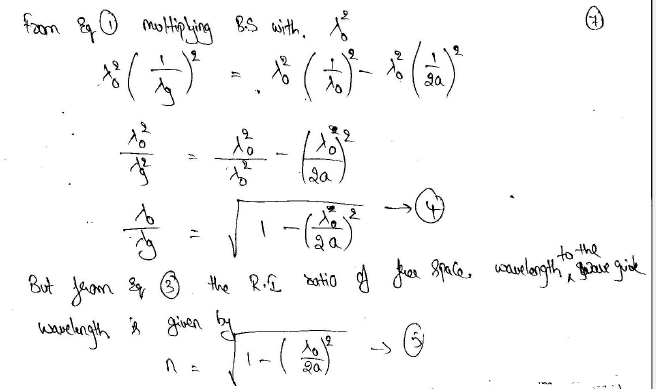 From Eq ① multiplying B.S with. λ₀² ⑦
λ₀² (1/λg)² = λ₀² (1/λ₀)² - λ₀² (1/2a)²
λ₀²/λg² = λ₀²/λ₀² - (λ₀/2a)²
λ₀/λg = √(1 - (λ₀/2a)²) → ④
But from Eq ③ the R.I ratio of free space wavelength to the wave guide
wavelength is given by
n = √(1 - (λ₀/2a)²) → ⑤